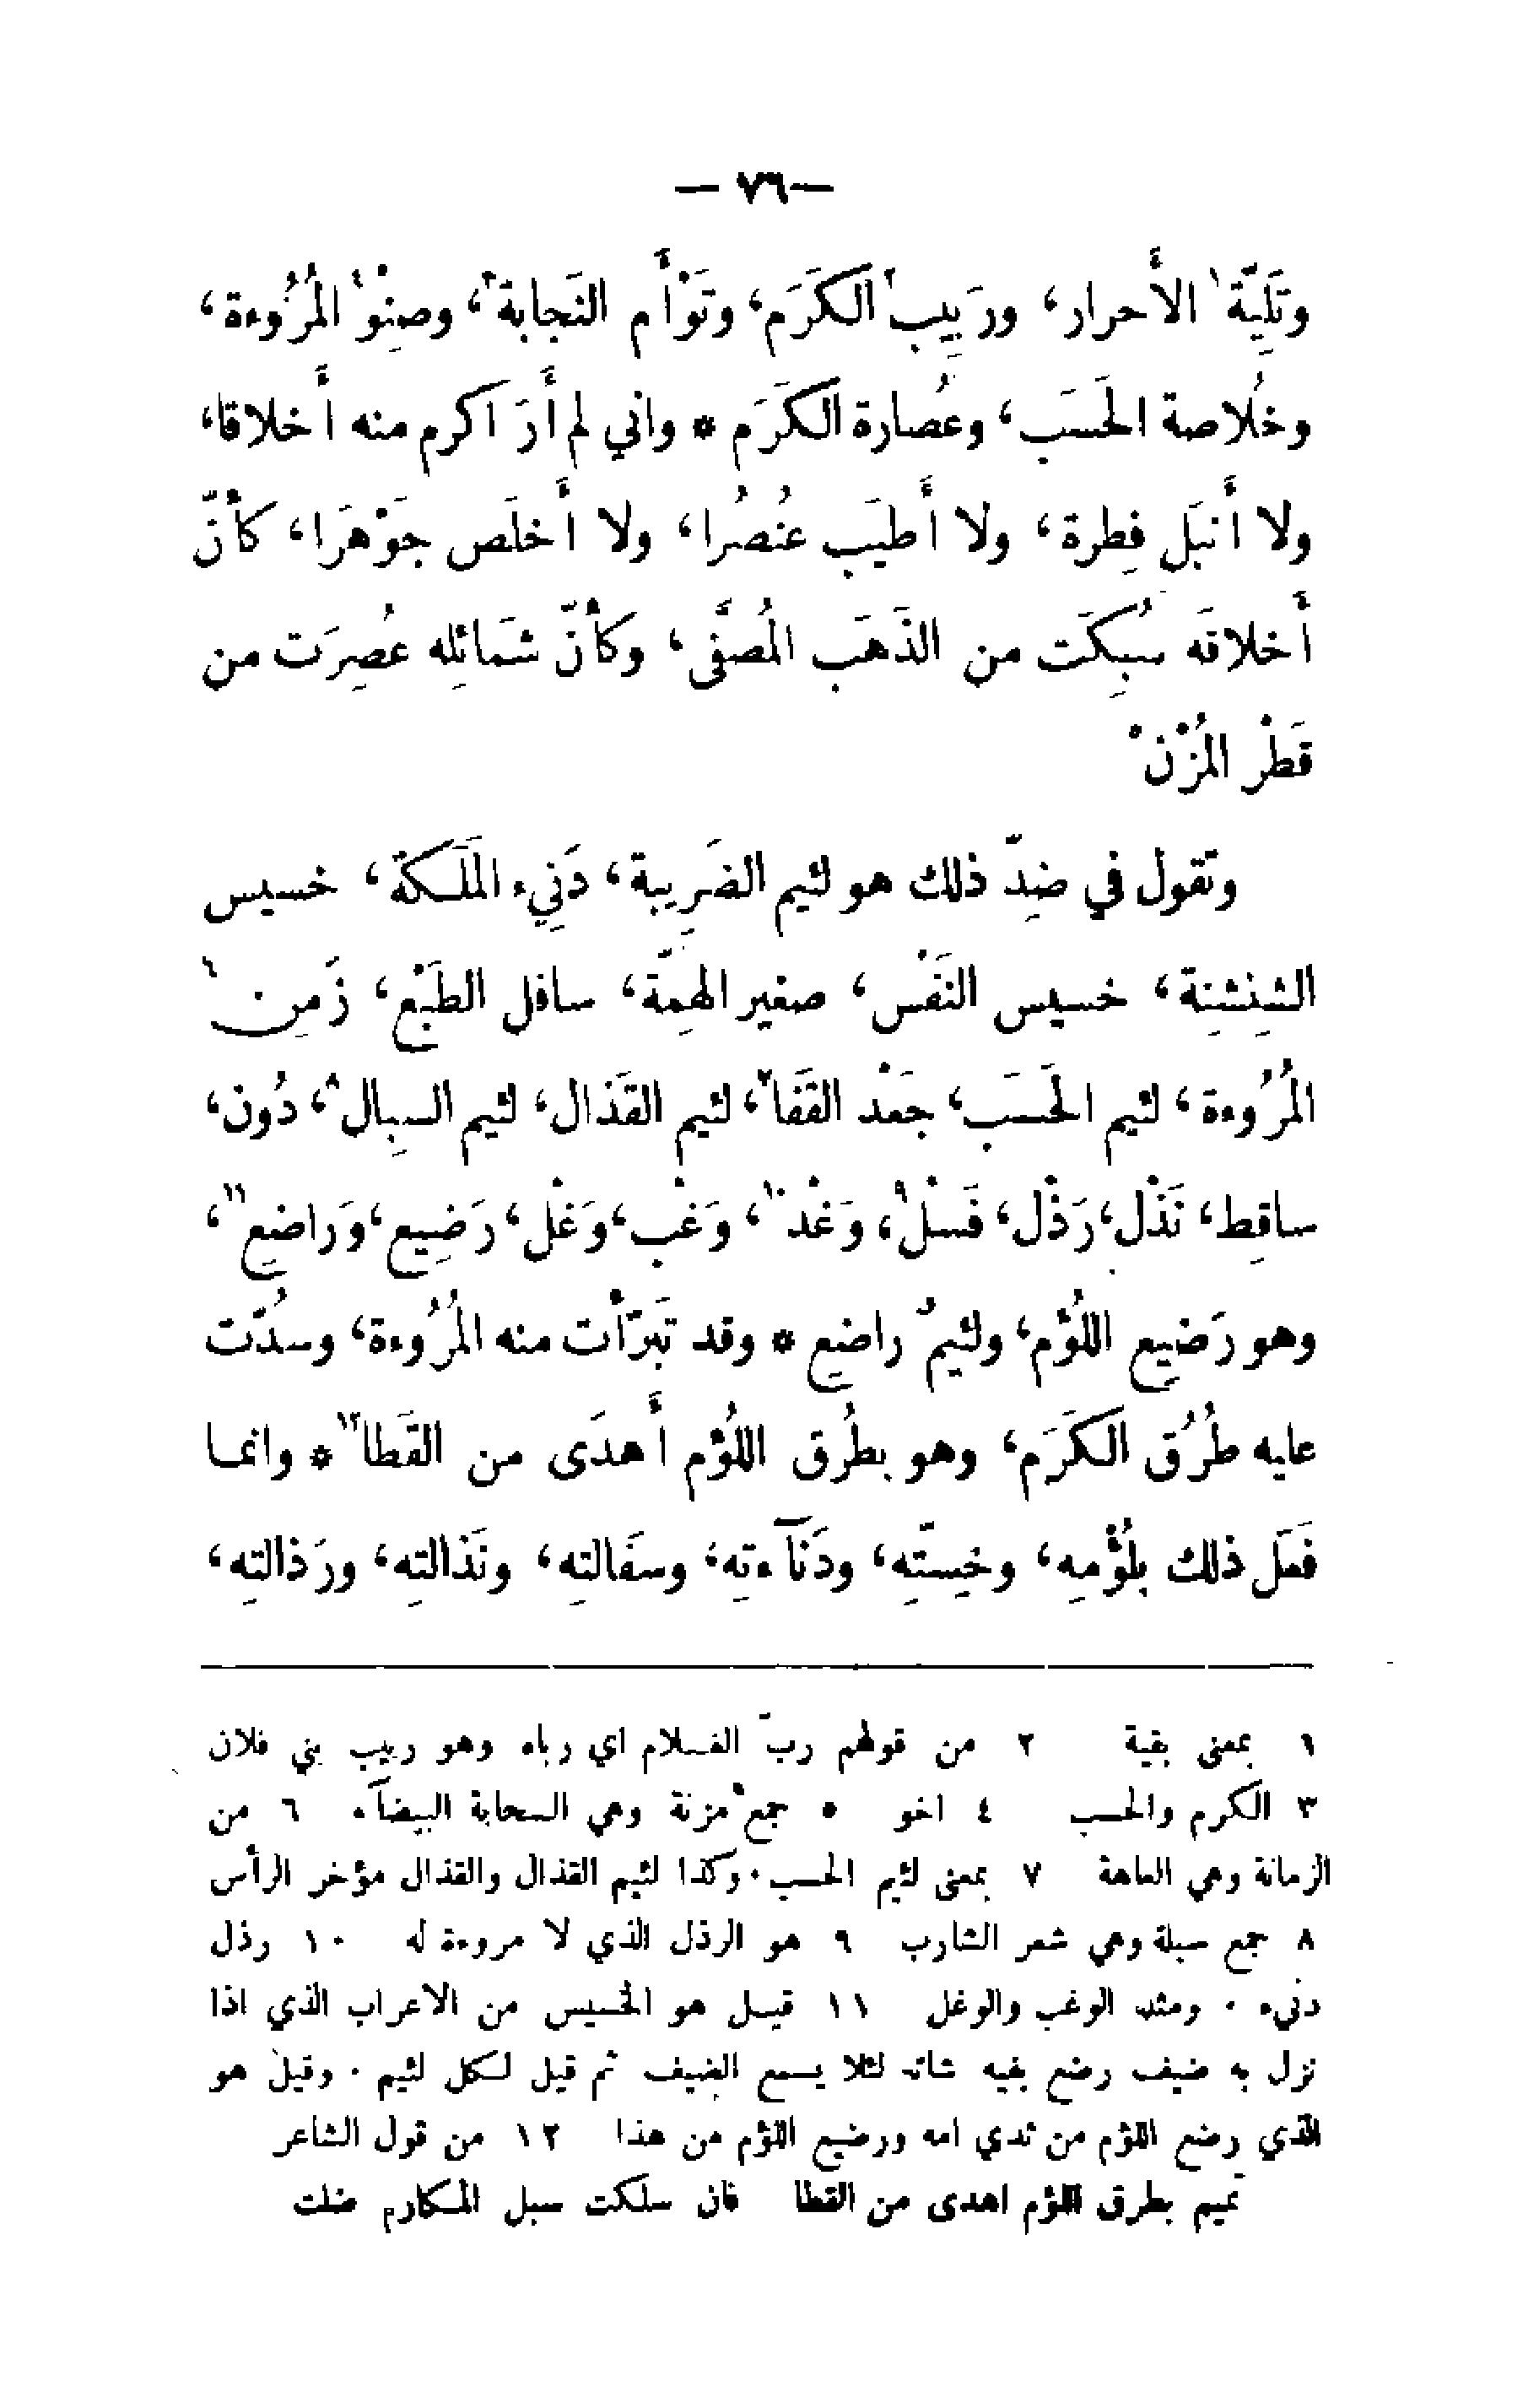 — ٧٦ —
وتَلِيَّة١ الأَحرار، ورَبِيب٢ الكَرَم، وتَوْأَم النَجابة٣، وصِنْو٤ المُرُوءة،
وخُلاصة الحَسَب، وعُصارة الكَرَم * واني لم أَرَ اكرم منه أَخلاقا،
ولا أَنبَل فِطرة، ولا أَطيَب عُنصُرا، ولا أَخلَص جَوْهَرا، كأَنّ
أَخلاقَه سُبِكَت من الذَهَب المُصفَّى، وكأَنّ شَمائِله عُصِرَت من
قَطْر المُزْن٥
وتقول في ضِدّ ذلك هو لئيم الضَرِيبة، دَنِيء المَلَكة، خسيس
الشِنشِنة، خسيس النَفْس، صغير الهِمّة، سافل الطَبْع، زَمِن٦
المُرُوءة، لئيم الحَسَب، جَعْد القَفَا٧، لئيم القَذال، لئيم السِبال٨، دُون،
ساقِط، نَذْل، رَذْل، فَسْل٩، وَغْد١٠، وَغْب، وَغْل، رَضِيع، وَراضِع١١،
وهو رَضِيع اللُؤْم، ولئيمٌ راضِع * وقد تَبَرّأَت منه المُرُوءة، وسُدّت
عليه طُرُق الكَرَم، وهو بطُرُق اللُؤْم أَهدَى من القَطا١٢ * وانما
فَعَل ذلك بلُؤْمِه، وخِسّتِه، ودَنآءتِه، وسفَالتِه، ونَذالتِه، ورَذالتِه،
١ بمعنى بقية ٢ من قولهم ربّ الغلام اي رباه وهو ربيب بني فلان
٣ الكرم والحسب ٤ اخو ٥ جمع مزنة وهي السحابة البيضآء ٦ من
الزمانة وهي العاهة ٧ بمعنى لئيم الحسب . وكذا لئيم القذال والقذال مؤخر الرأس
٨ جمع سبلة وهي شعر الشارب ٩ هو الرذل الذي لا مروءة له ١٠ رذل
دنيء . ومثله الوغب والوغل ١١ قيل هو الخسيس من الاعراب الذي اذا
نزل به ضيف رضع بفيه شاته لئلا يسمع الضيف ثم قيل لكل لئيم . وقيل هو
الذي رضع اللؤم من ثدي امه ورضيع اللؤم من هذا ١٢ من قول الشاعر
تميم بطرق اللؤم اهدى من القطا فان سلكت سبل المكارم ضلت